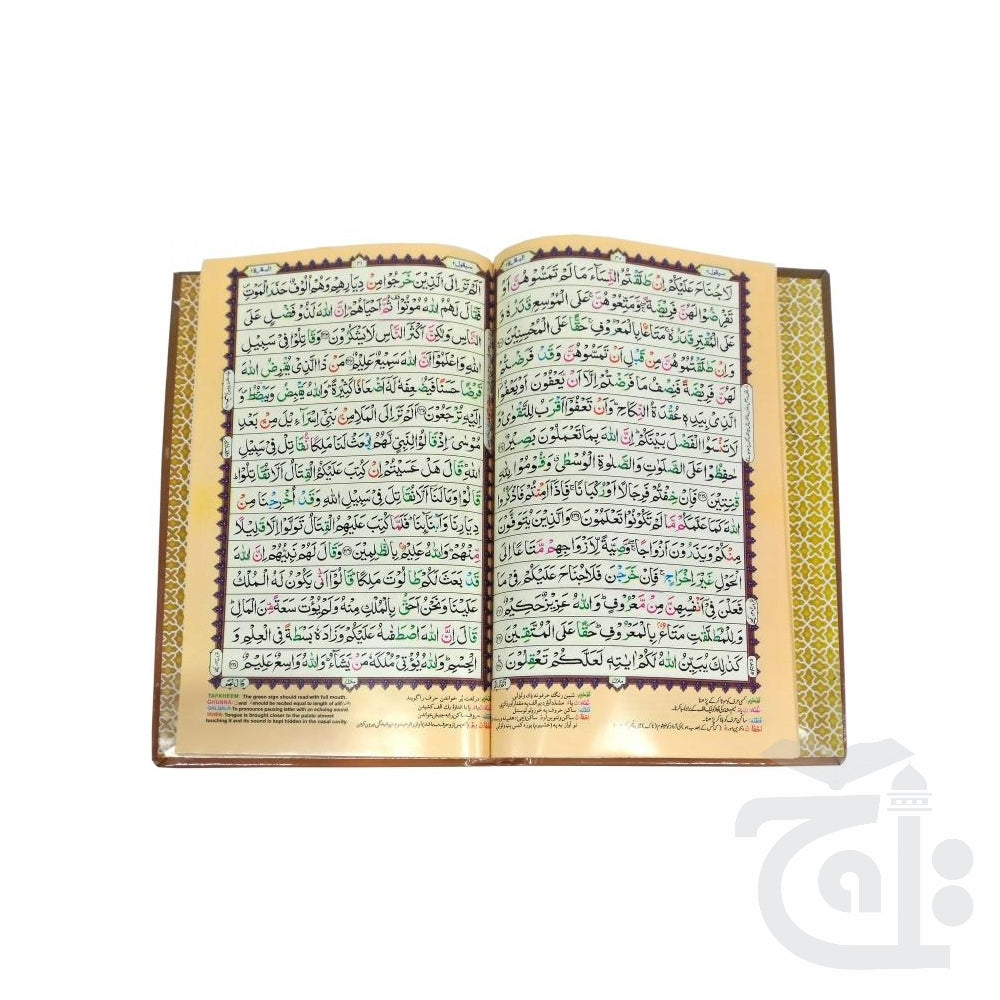 سيقول ٢
البقرة ٢
لَاجُنَاحَ عَلَيْكُمْ اِنْ طَلَّقْتُمُ النِّسَآءَ مَا لَمْ تَمَسُّوْهُنَّ اَوْ
تَفْرِضُوْا لَهُنَّ فَرِيْضَةً وَّمَتِّعُوْهُنَّ عَلَى الْمُوْسِعِ قَدَرُهٗ وَ
عَلَى الْمُقْتِرِ قَدَرُهٗ مَتَاعًۢا بِالْمَعْرُوْفِ حَقًّا عَلَى الْمُحْسِنِيْنَ
وَاِنْ طَلَّقْتُمُوْهُنَّ مِنْ قَبْلِ اَنْ تَمَسُّوْهُنَّ وَقَدْ فَرَضْتُمْ
لَهُنَّ فَرِيْضَةً فَنِصْفُ مَا فَرَضْتُمْ اِلَّآ اَنْ يَّعْفُوْنَ اَوْ يَعْفُوَا
الَّذِيْ بِيَدِهٖ عُقْدَةُ النِّكَاحِ وَاَنْ تَعْفُوْٓا اَقْرَبُ لِلتَّقْوٰى وَ
لَا تَنْسَوُا الْفَضْلَ بَيْنَكُمْ اِنَّ اللّٰهَ بِمَا تَعْمَلُوْنَ بَصِيْرٌ
حٰفِظُوْا عَلَى الصَّلَوٰتِ وَالصَّلٰوةِ الْوُسْطٰى وَقُوْمُوْا لِلّٰهِ
قٰنِتِيْنَ فَاِنْ خِفْتُمْ فَرِجَالًا اَوْ رُكْبَانًا فَاِذَآ اَمِنْتُمْ فَاذْكُرُوا
اللّٰهَ كَمَا عَلَّمَكُمْ مَّا لَمْ تَكُوْنُوْا تَعْلَمُوْنَ وَالَّذِيْنَ يُتَوَفَّوْنَ
مِنْكُمْ وَيَذَرُوْنَ اَزْوَاجًا وَّصِيَّةً لِّاَزْوَاجِهِمْ مَّتَاعًا اِلَى
الْحَوْلِ غَيْرَ اِخْرَاجٍ فَاِنْ خَرَجْنَ فَلَا جُنَاحَ عَلَيْكُمْ فِيْ مَا
فَعَلْنَ فِيْٓ اَنْفُسِهِنَّ مِنْ مَّعْرُوْفٍ وَاللّٰهُ عَزِيْزٌ حَكِيْمٌ
وَلِلْمُطَلَّقٰتِ مَتَاعٌۢ بِالْمَعْرُوْفِ حَقًّا عَلَى الْمُتَّقِيْنَ
كَذٰلِكَ يُبَيِّنُ اللّٰهُ لَكُمْ اٰيٰتِهٖ لَعَلَّكُمْ تَعْقِلُوْنَ
سيقول ٢
البقرة ٢
اَلَمْ تَرَ اِلَى الَّذِيْنَ خَرَجُوْا مِنْ دِيَارِهِمْ وَهُمْ اُلُوْفٌ حَذَرَ الْمَوْتِ
فَقَالَ لَهُمُ اللّٰهُ مُوْتُوْا ثُمَّ اَحْيَاهُمْ اِنَّ اللّٰهَ لَذُوْ فَضْلٍ عَلَى
النَّاسِ وَلٰكِنَّ اَكْثَرَ النَّاسِ لَا يَشْكُرُوْنَ وَقَاتِلُوْا فِيْ سَبِيْلِ
اللّٰهِ وَاعْلَمُوْٓا اَنَّ اللّٰهَ سَمِيْعٌ عَلِيْمٌ مَنْ ذَا الَّذِيْ يُقْرِضُ اللّٰهَ
قَرْضًا حَسَنًا فَيُضٰعِفَهٗ لَهٗٓ اَضْعَافًا كَثِيْرَةً وَاللّٰهُ يَقْبِضُ وَيَبْصُۜطُ وَ
اِلَيْهِ تُرْجَعُوْنَ اَلَمْ تَرَ اِلَى الْمَلَاِ مِنْۢ بَنِيْٓ اِسْرَآءِيْلَ مِنْۢ بَعْدِ
مُوْسٰى اِذْ قَالُوْا لِنَبِيٍّ لَّهُمُ ابْعَثْ لَنَا مَلِكًا نُّقَاتِلْ فِيْ سَبِيْلِ
اللّٰهِ قَالَ هَلْ عَسَيْتُمْ اِنْ كُتِبَ عَلَيْكُمُ الْقِتَالُ اَلَّا تُقَاتِلُوْا
قَالُوْا وَمَا لَنَآ اَلَّا نُقَاتِلَ فِيْ سَبِيْلِ اللّٰهِ وَقَدْ اُخْرِجْنَا مِنْ
دِيَارِنَا وَاَبْنَآئِنَا فَلَمَّا كُتِبَ عَلَيْهِمُ الْقِتَالُ تَوَلَّوْا اِلَّا قَلِيْلًا
مِّنْهُمْ وَاللّٰهُ عَلِيْمٌۢ بِالظّٰلِمِيْنَ وَقَالَ لَهُمْ نَبِيُّهُمْ اِنَّ اللّٰهَ
قَدْ بَعَثَ لَكُمْ طَالُوْتَ مَلِكًا قَالُوْٓا اَنّٰى يَكُوْنُ لَهُ الْمُلْكُ
عَلَيْنَا وَنَحْنُ اَحَقُّ بِالْمُلْكِ مِنْهُ وَلَمْ يُؤْتَ سَعَةً مِّنَ الْمَالِ
قَالَ اِنَّ اللّٰهَ اصْطَفٰىهُ عَلَيْكُمْ وَزَادَهٗ بَسْطَةً فِي الْعِلْمِ وَ
الْجِسْمِ وَاللّٰهُ يُؤْتِيْ مُلْكَهٗ مَنْ يَّشَآءُ وَاللّٰهُ وَاسِعٌ عَلِيْمٌ
TAFKHEEM: The green sign should read with full mouth.
GHUNNA: and should be recited equal to length of alif
QALQALA: To pronounce pausing letter with an echoing sound.
IKHFA: Tongue is brought closer to the palate almost
touching it and its sound is kept hidden in the nasal cavity.